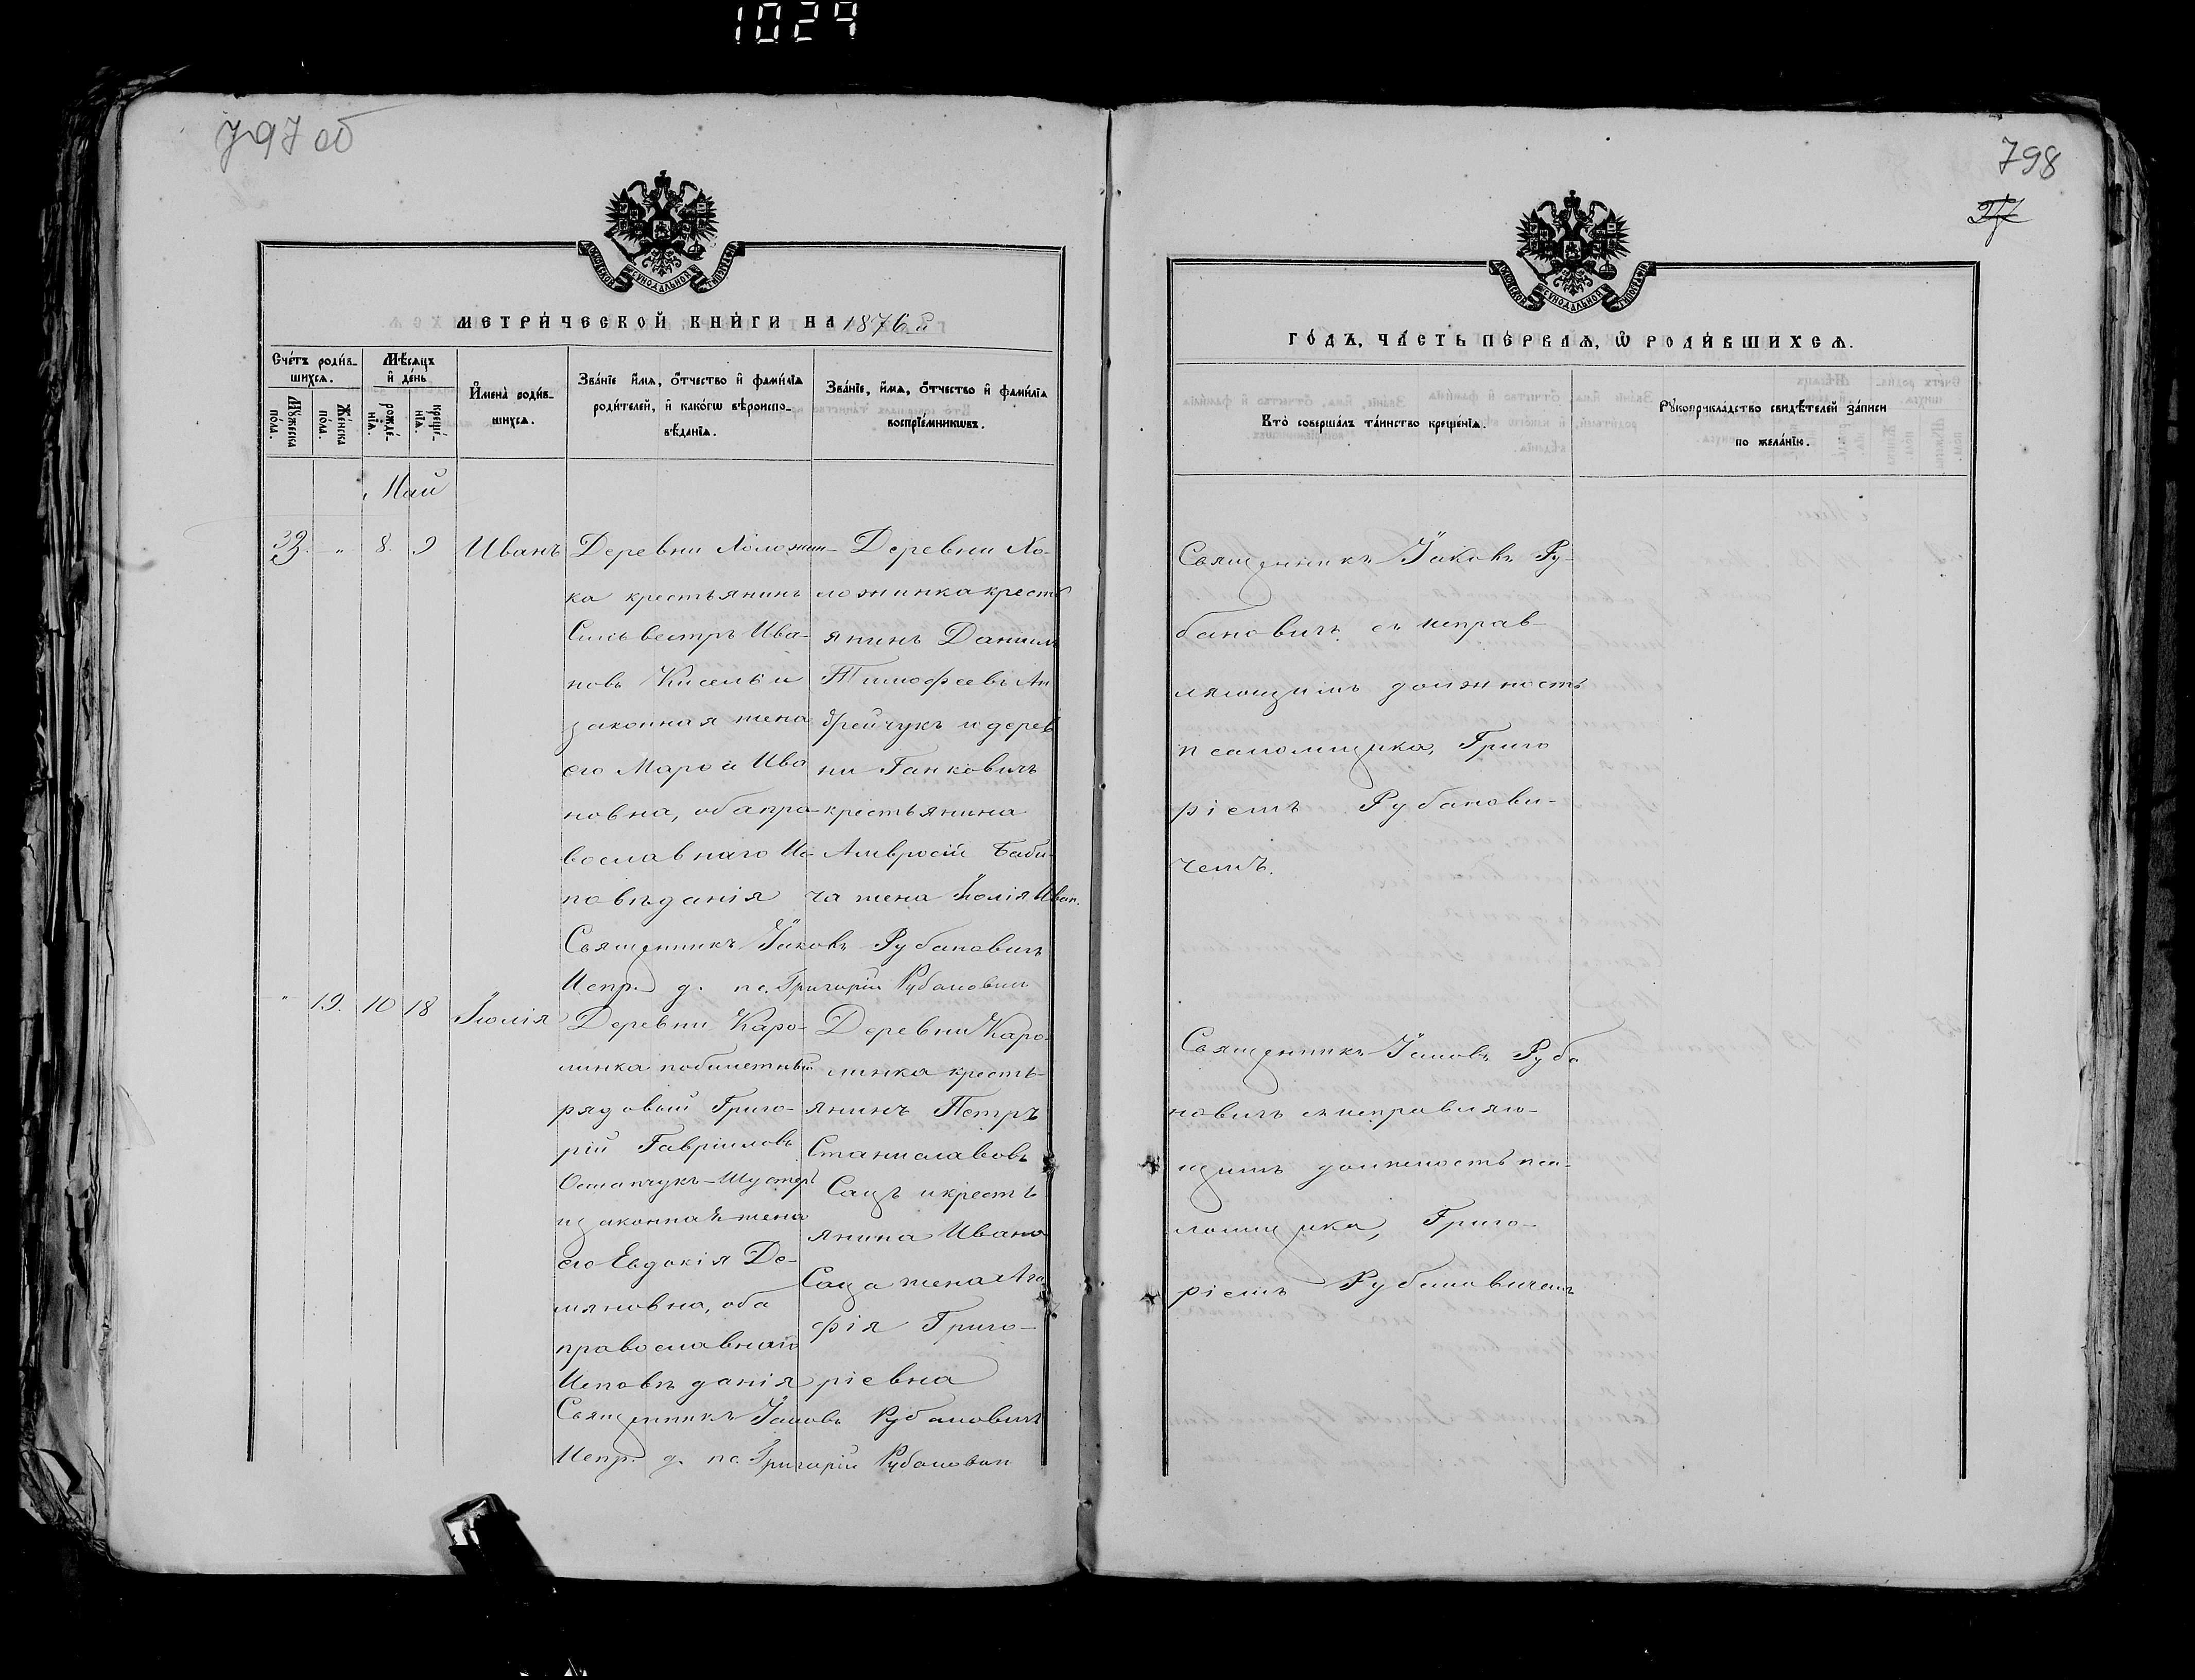 1024
797 об
МОСКОВСКОЙ СѴНОДАЛЬНОЙ ТИПОГРАФІИ
МЕТРИ́ЧЕСКОЙ КНИ́ГИ НА 1876й
Сче́тъ роди́в-
шихсѧ.
Мꙋ́жеска
по́ла.
Же́нска
по́ла.
Мѣ́сѧцъ
и҆ де́нь
рожде́-
нїѧ.
креще́-
нїѧ.
И҆мена̀ роди́в-
шихсѧ.
Зва́нїе и҆́мѧ, ѻ҆́тчество и҆ фами́лїѧ
роди́телей, и҆ како́гѡ вѣроиспо-
вѣ́данїѧ.
Зва́нїе, и҆́мѧ, ѻ҆́тчество и҆ фами́лїѧ
воспрїе́мникѡвъ.
Май
8. 9 Иванъ
Деревни Холожин-
ка крестьянинъ
Сильвестръ Ива-
новъ Кисель и
законная жена
его Марѳа Ива
новна, оба пра-
вославнаго Ис-
повѣданія
Деревни Хо-
ложинка кресть
янинъ Даниилъ
Тимофеевъ Ан
дрейчукъ и дерев
ни Ганковичъ
крестьянина
Амвросій Баби-
ча жена Юлія Иван.
Священникъ Іаковъ Рубановичъ
Испр. д. пс. Григорій Рубановичъ
" 19. 10 18 Юлія
Деревни Каро-
линка побилетный
рядовой Григо-
рій Гавріиловъ
Остапчукъ-Шустеръ
и законная жена
его Евдокія Де-
мяновна, оба
православнаго
Исповѣданія
Деревни Каро-
линка кресть-
янинъ Петръ
Станиславовъ
Сацъ и кресть
янина Ивана
Саца жена Ага
фія Григо-
ріевна
Священникъ Іаковъ Рубановичъ
Испр. д. пс. Григорій Рубановичъ
798
27
МОСКОВСКОЙ СѴНОДАЛЬНОЙ ТИПОГРАФІИ
ГО́ДЪ, ЧА́СТЬ ПЕ́РВАѦ, Ѡ҆ РОДИ́ВШИХСѦ.
Кто̀ соверша́лъ та́инство креще́нїѧ.
Рꙋкоприкла́дство свидѣ́телей за́писи
по жела́нїю.
Священникъ Іаковъ Ру-
бановичъ съ исправ-
ляющимъ должность
псаломщика, Григо
ріемъ Рубанови-
чемъ.
Священникъ Іаковъ Руба
новичъ съ исправляю-
щимъ должность пса-
ломщика, Григо-
ріемъ Рубановичемъ